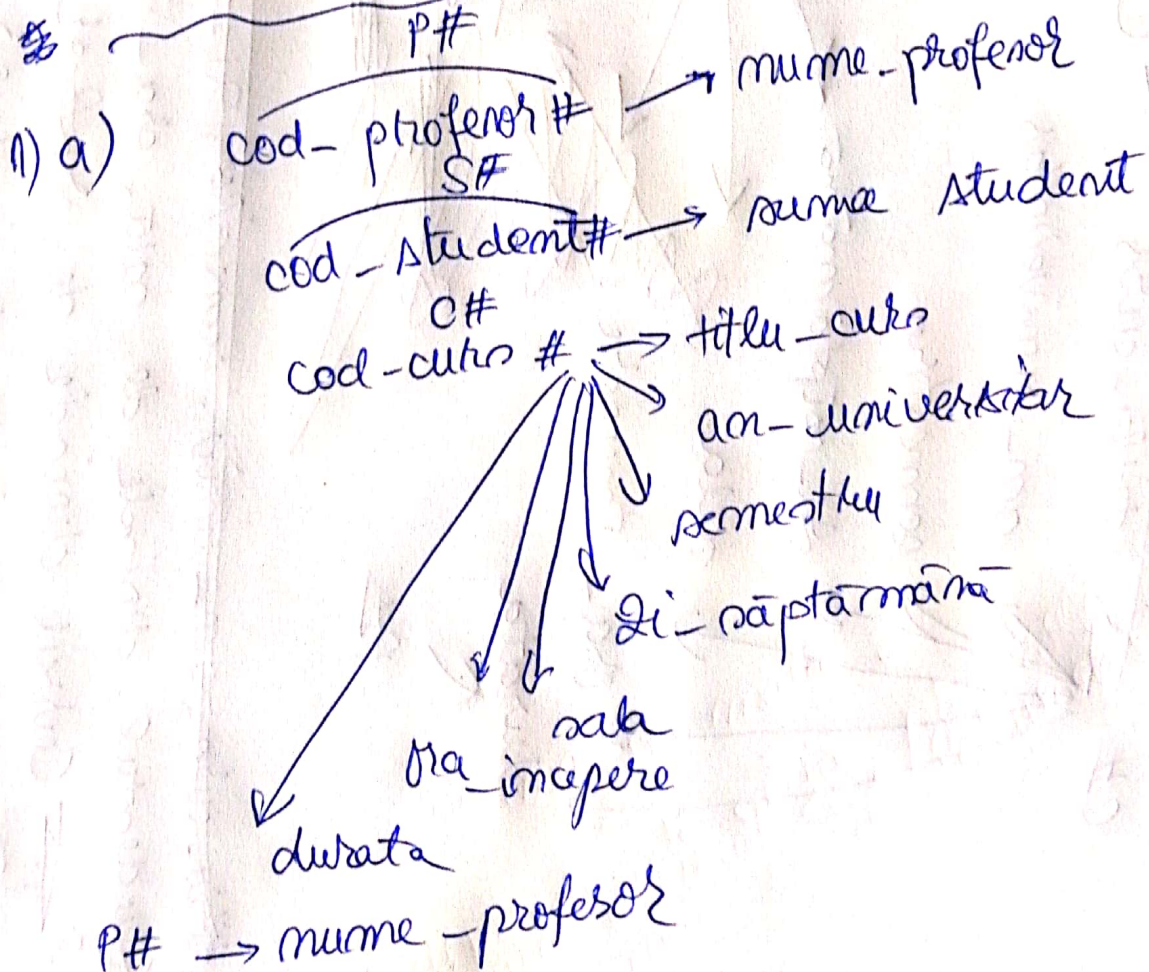 P#
1) a) cod-profesor# → nume-profesor
S#
cod-student# → nume student
C#
cod-curs # → titlu-curs
an-universitar
semestru
zi-săptămână
sala
ora_incepere
durata
P# → nume-profesor